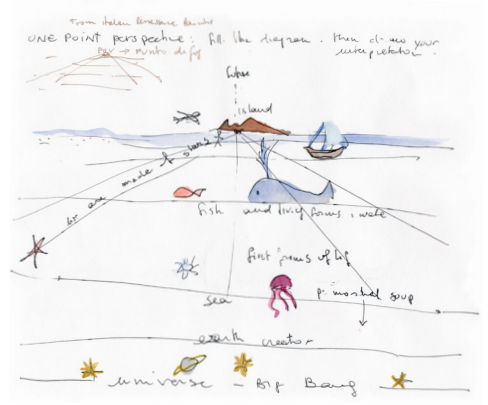 From italian Renaissance
ONE POINT perspective: fill the diagram. then draw your
interpretation.
PDF → Punto di fuga
future
island
we are made of stars
fish and living forms, water
first forms of life
sea
primordial soup
earth creation
universe - BIg Bang